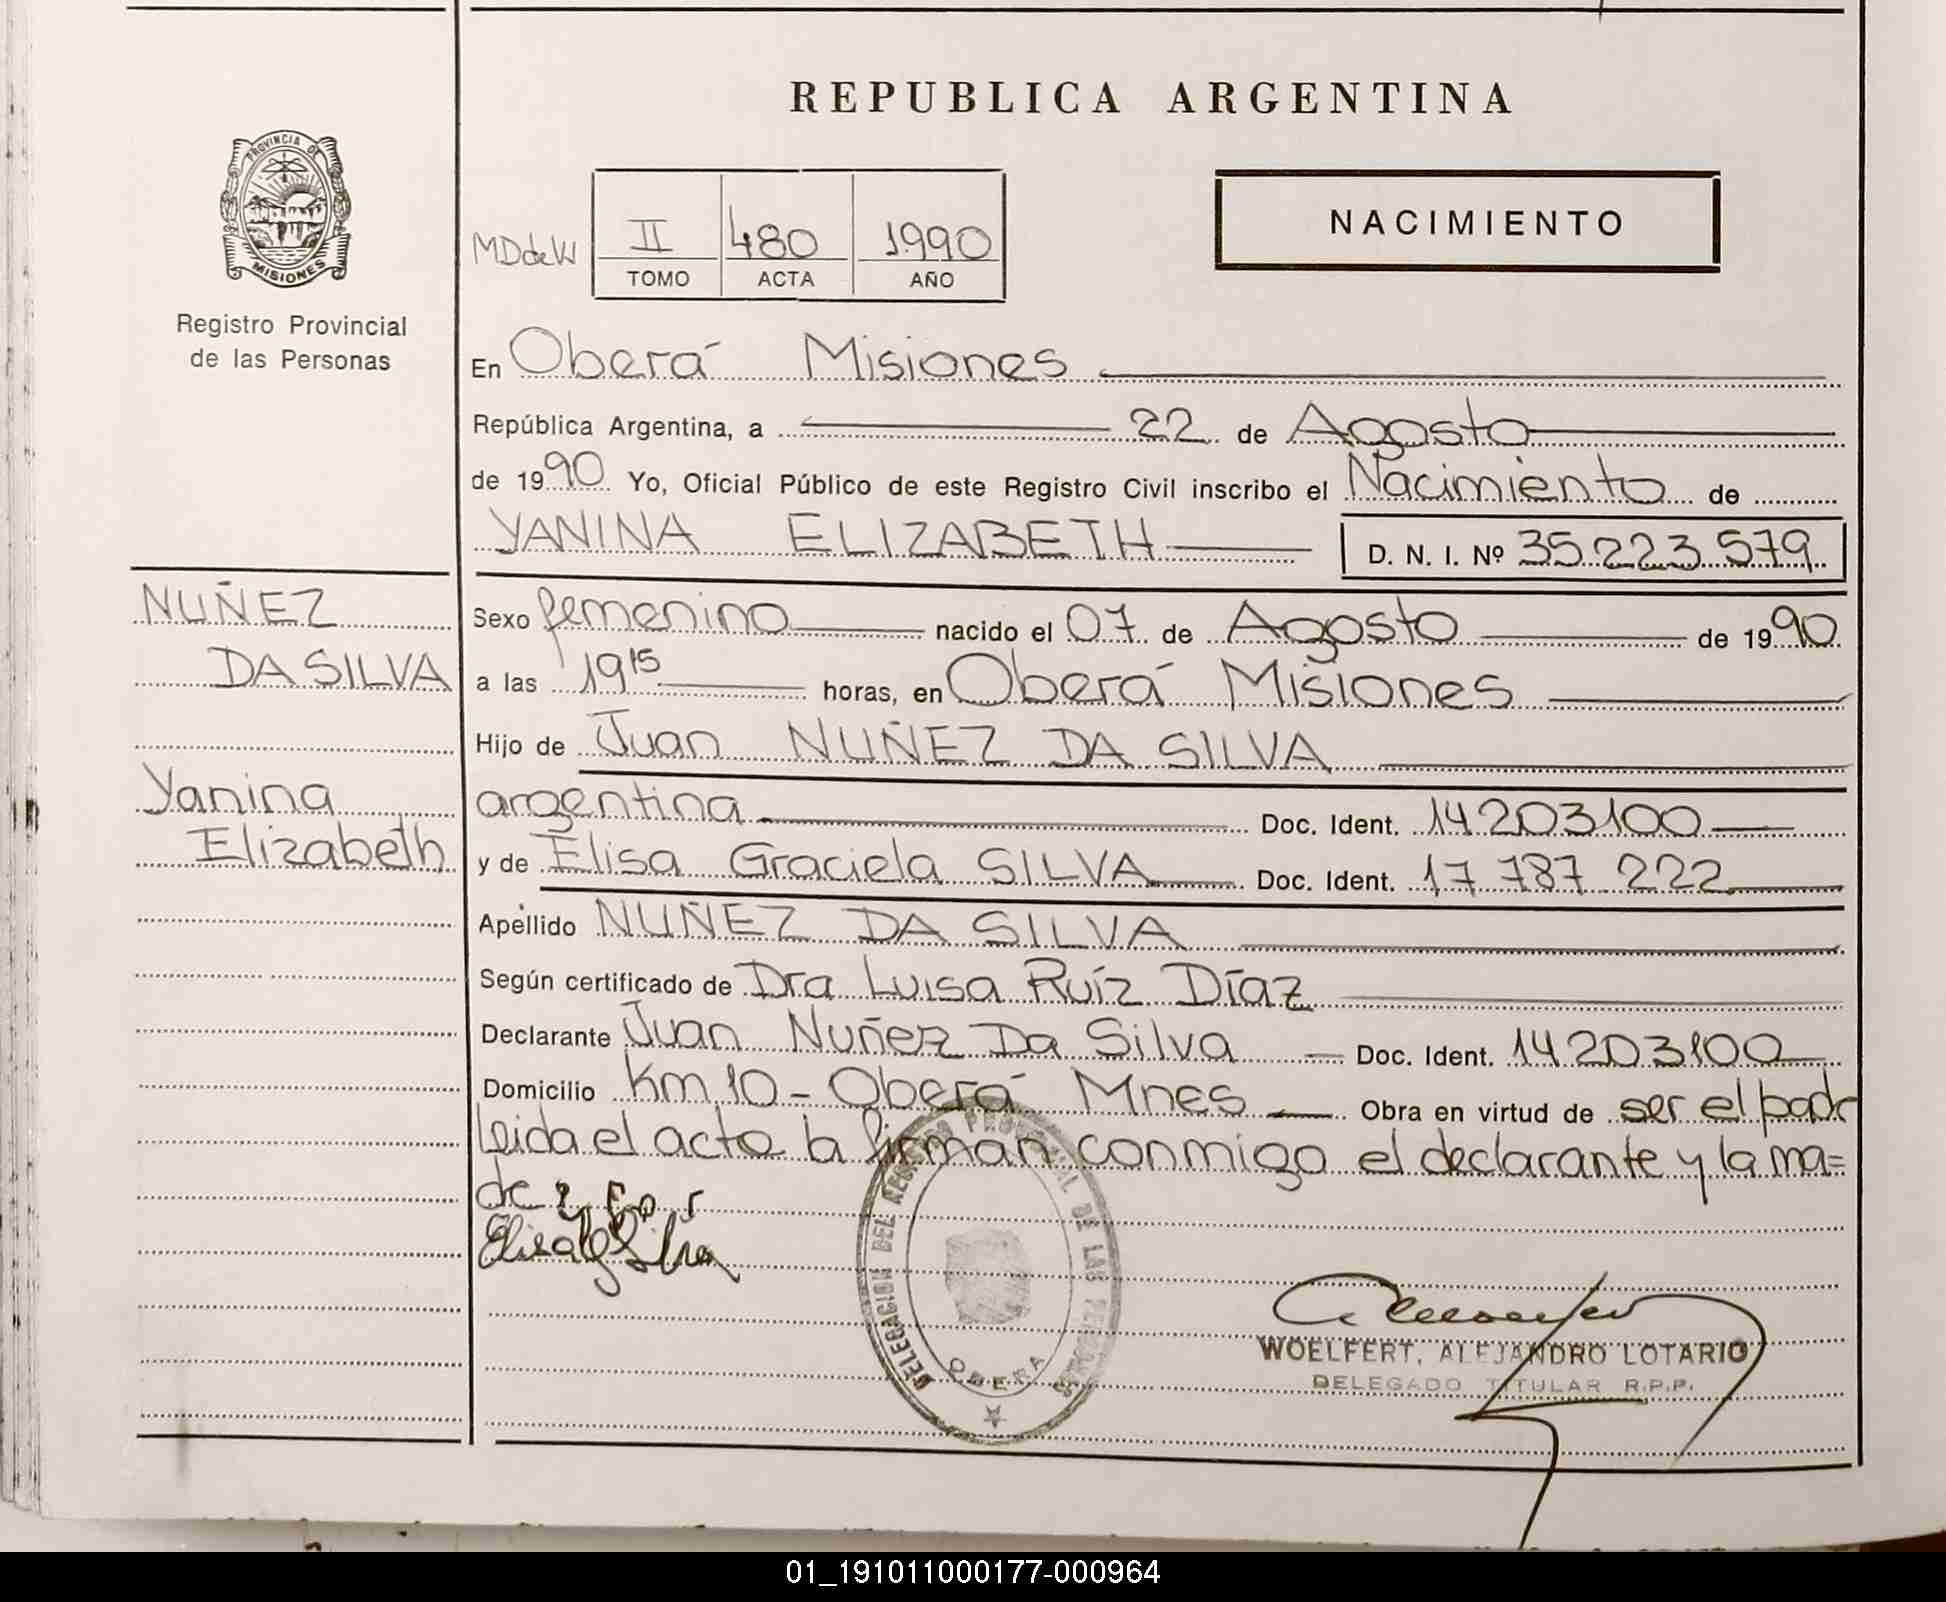 REPUBLICA ARGENTINA
PROVINCIA DE
MISIONES
Registro Provincial
de las Personas
NACIMIENTO
MDdeW
II 480 1990
TOMO ACTA AÑO
En Oberá Misiones
República Argentina, a 22 de Agosto
de 1990 Yo, Oficial Público de este Registro Civil inscribo el Nacimiento de
YANINA ELIZABETH D. N. I. Nº 35.223.579
NUÑEZ
DA SILVA
Yanina
Elizabeth
Sexo femenino nacido el 07 de Agosto de 1990
a las 19 15 horas, en Oberá Misiones
Hijo de Juan NUÑEZ DA SILVA
argentina Doc. Ident. 14203100
y de Elisa Graciela SILVA Doc. Ident. 17 787 222
Apellido NUÑEZ DA SILVA
Según certificado de Dra Luisa Ruíz Díaz
Declarante Juan Nuñez Da Silva Doc. Ident. 14203100
Domicilio Km 10 - Oberá Mnes Obra en virtud de ser el padre
leida el acta la firman conmigo el declarante y la ma=
dre
DELEGACION DEL REGISTRO PROVINCIAL DE LAS PERSONAS
OBERA
WOELFERT, ALEJANDRO LOTARIO
DELEGADO TITULAR R.P.P.
01_191011000177-000964